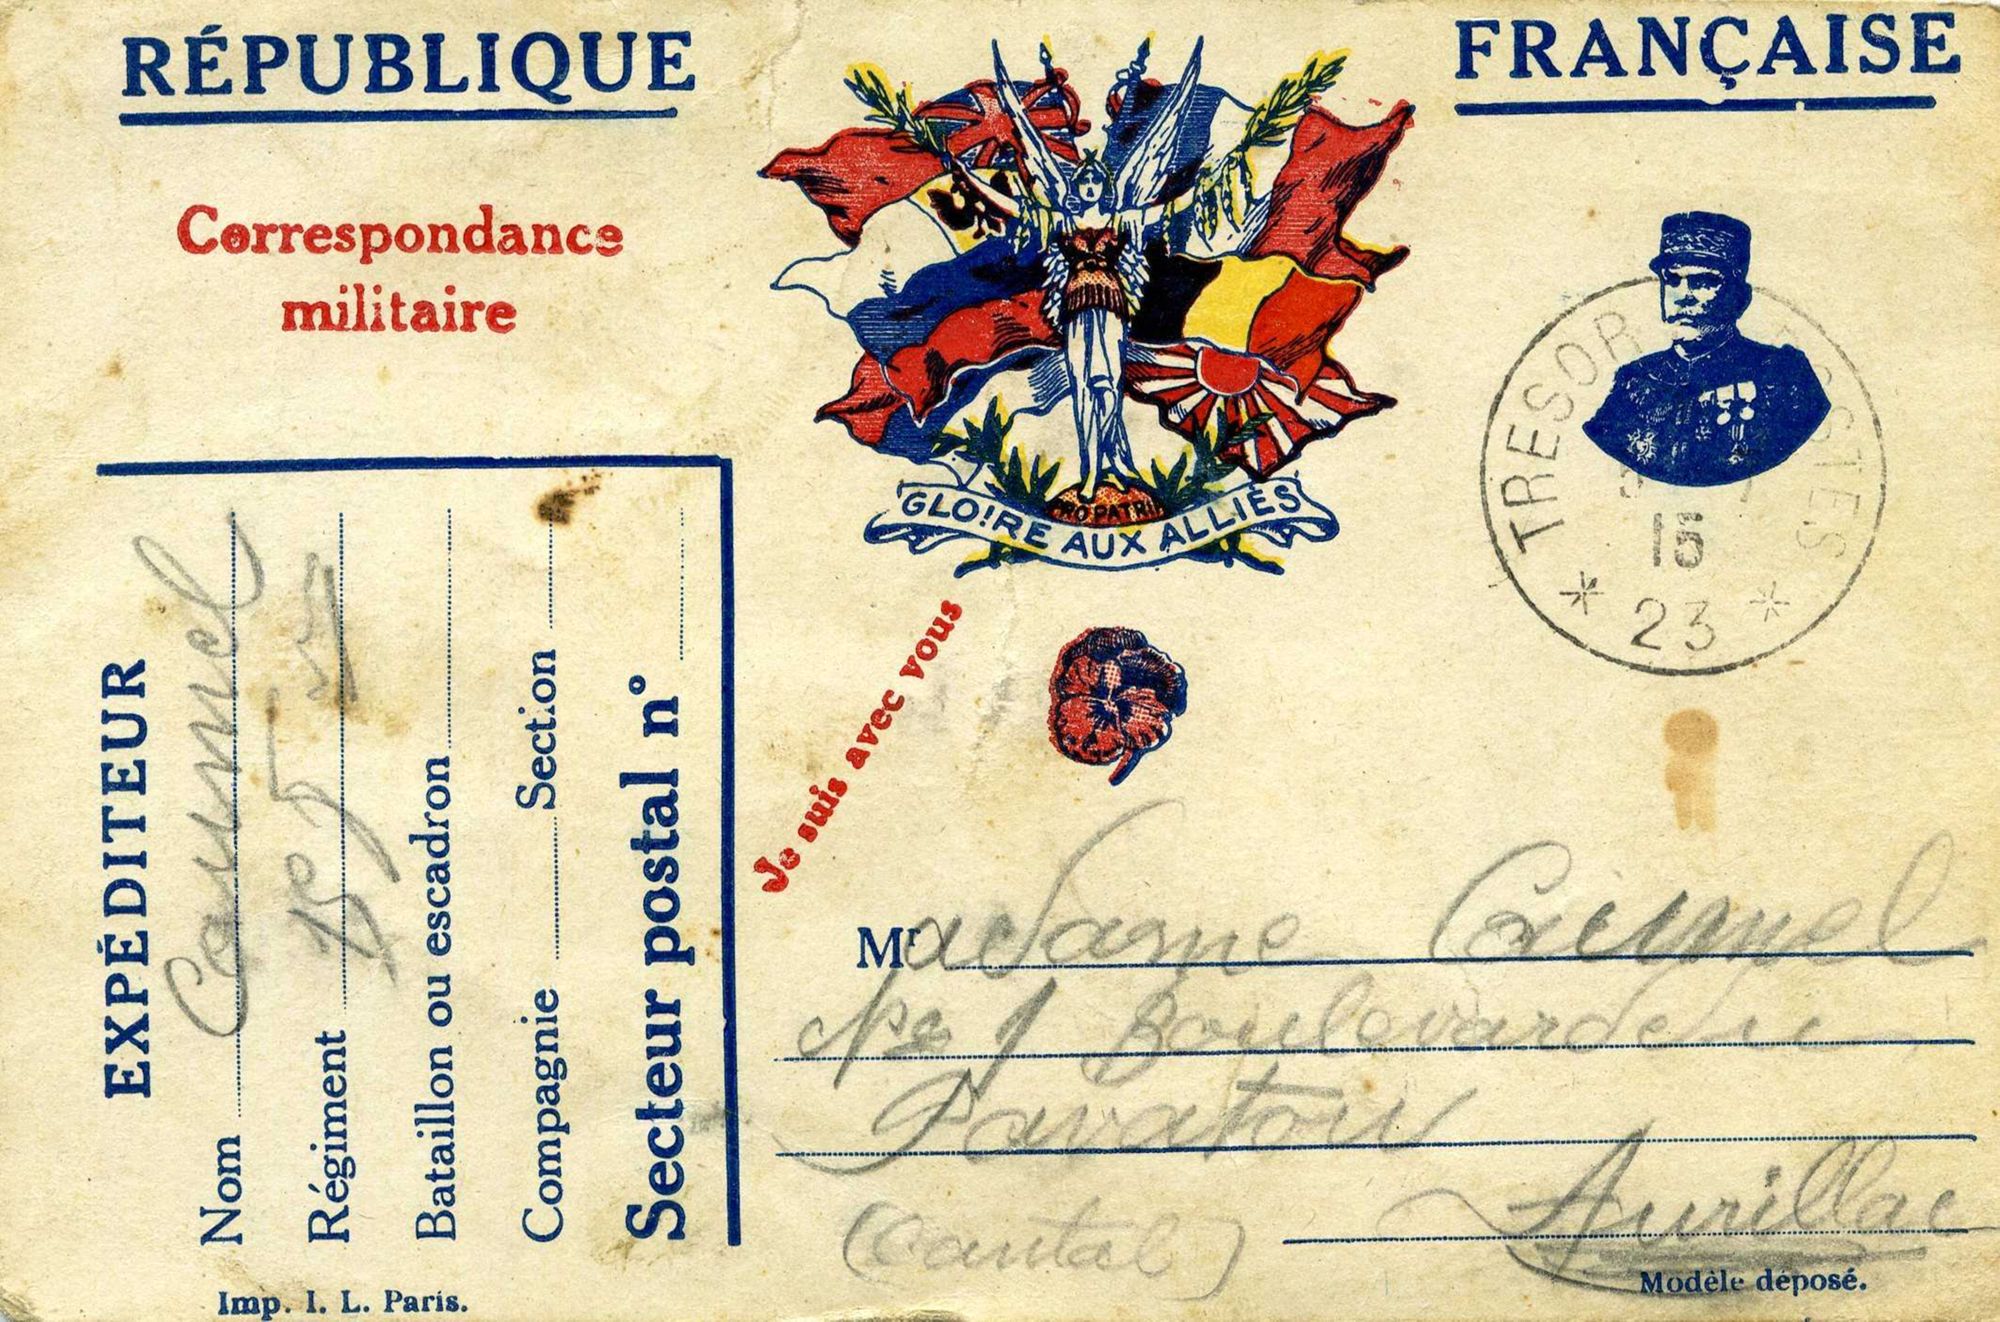 RÉPUBLIQUE
FRANÇAISE
Correspondance
militaire
PRO PATRIA
GLOIRE AUX ALLIÉS
Je suis avec vous
TRESOR POSTES
15
* 23 *
EXPÉDITEUR
Nom Coumel
Régiment
Bataillon ou escadron
Compagnie Section
Secteur postal n°
Madame Coumel
No 1 Boulevard du
Pavatou
Aurillac
(Cantal)
Imp. I. L. Paris.
Modèle déposé.